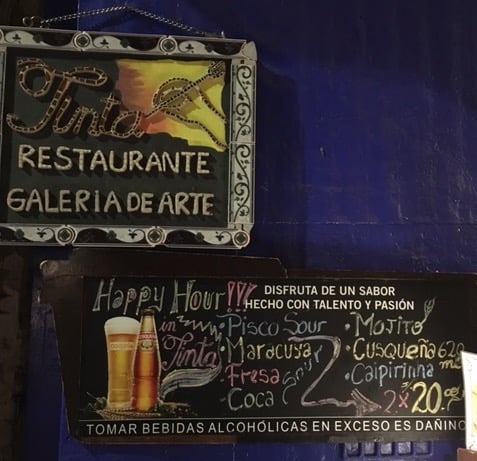 Tinta
RESTAURANTE
GALERIA DE ARTE
Happy Hour!!!
in
Tinta
DISFRUTA DE UN SABOR
HECHO CON TALENTO Y PASIÓN
• Pisco Sour
• Maracuya
• Fresa
• Coca
Sour
• Mojito
• Cusqueña 620 ml
• Caipirinha
2 x 20.00
TOMAR BEBIDAS ALCOHÓLICAS EN EXCESO ES DAÑINO